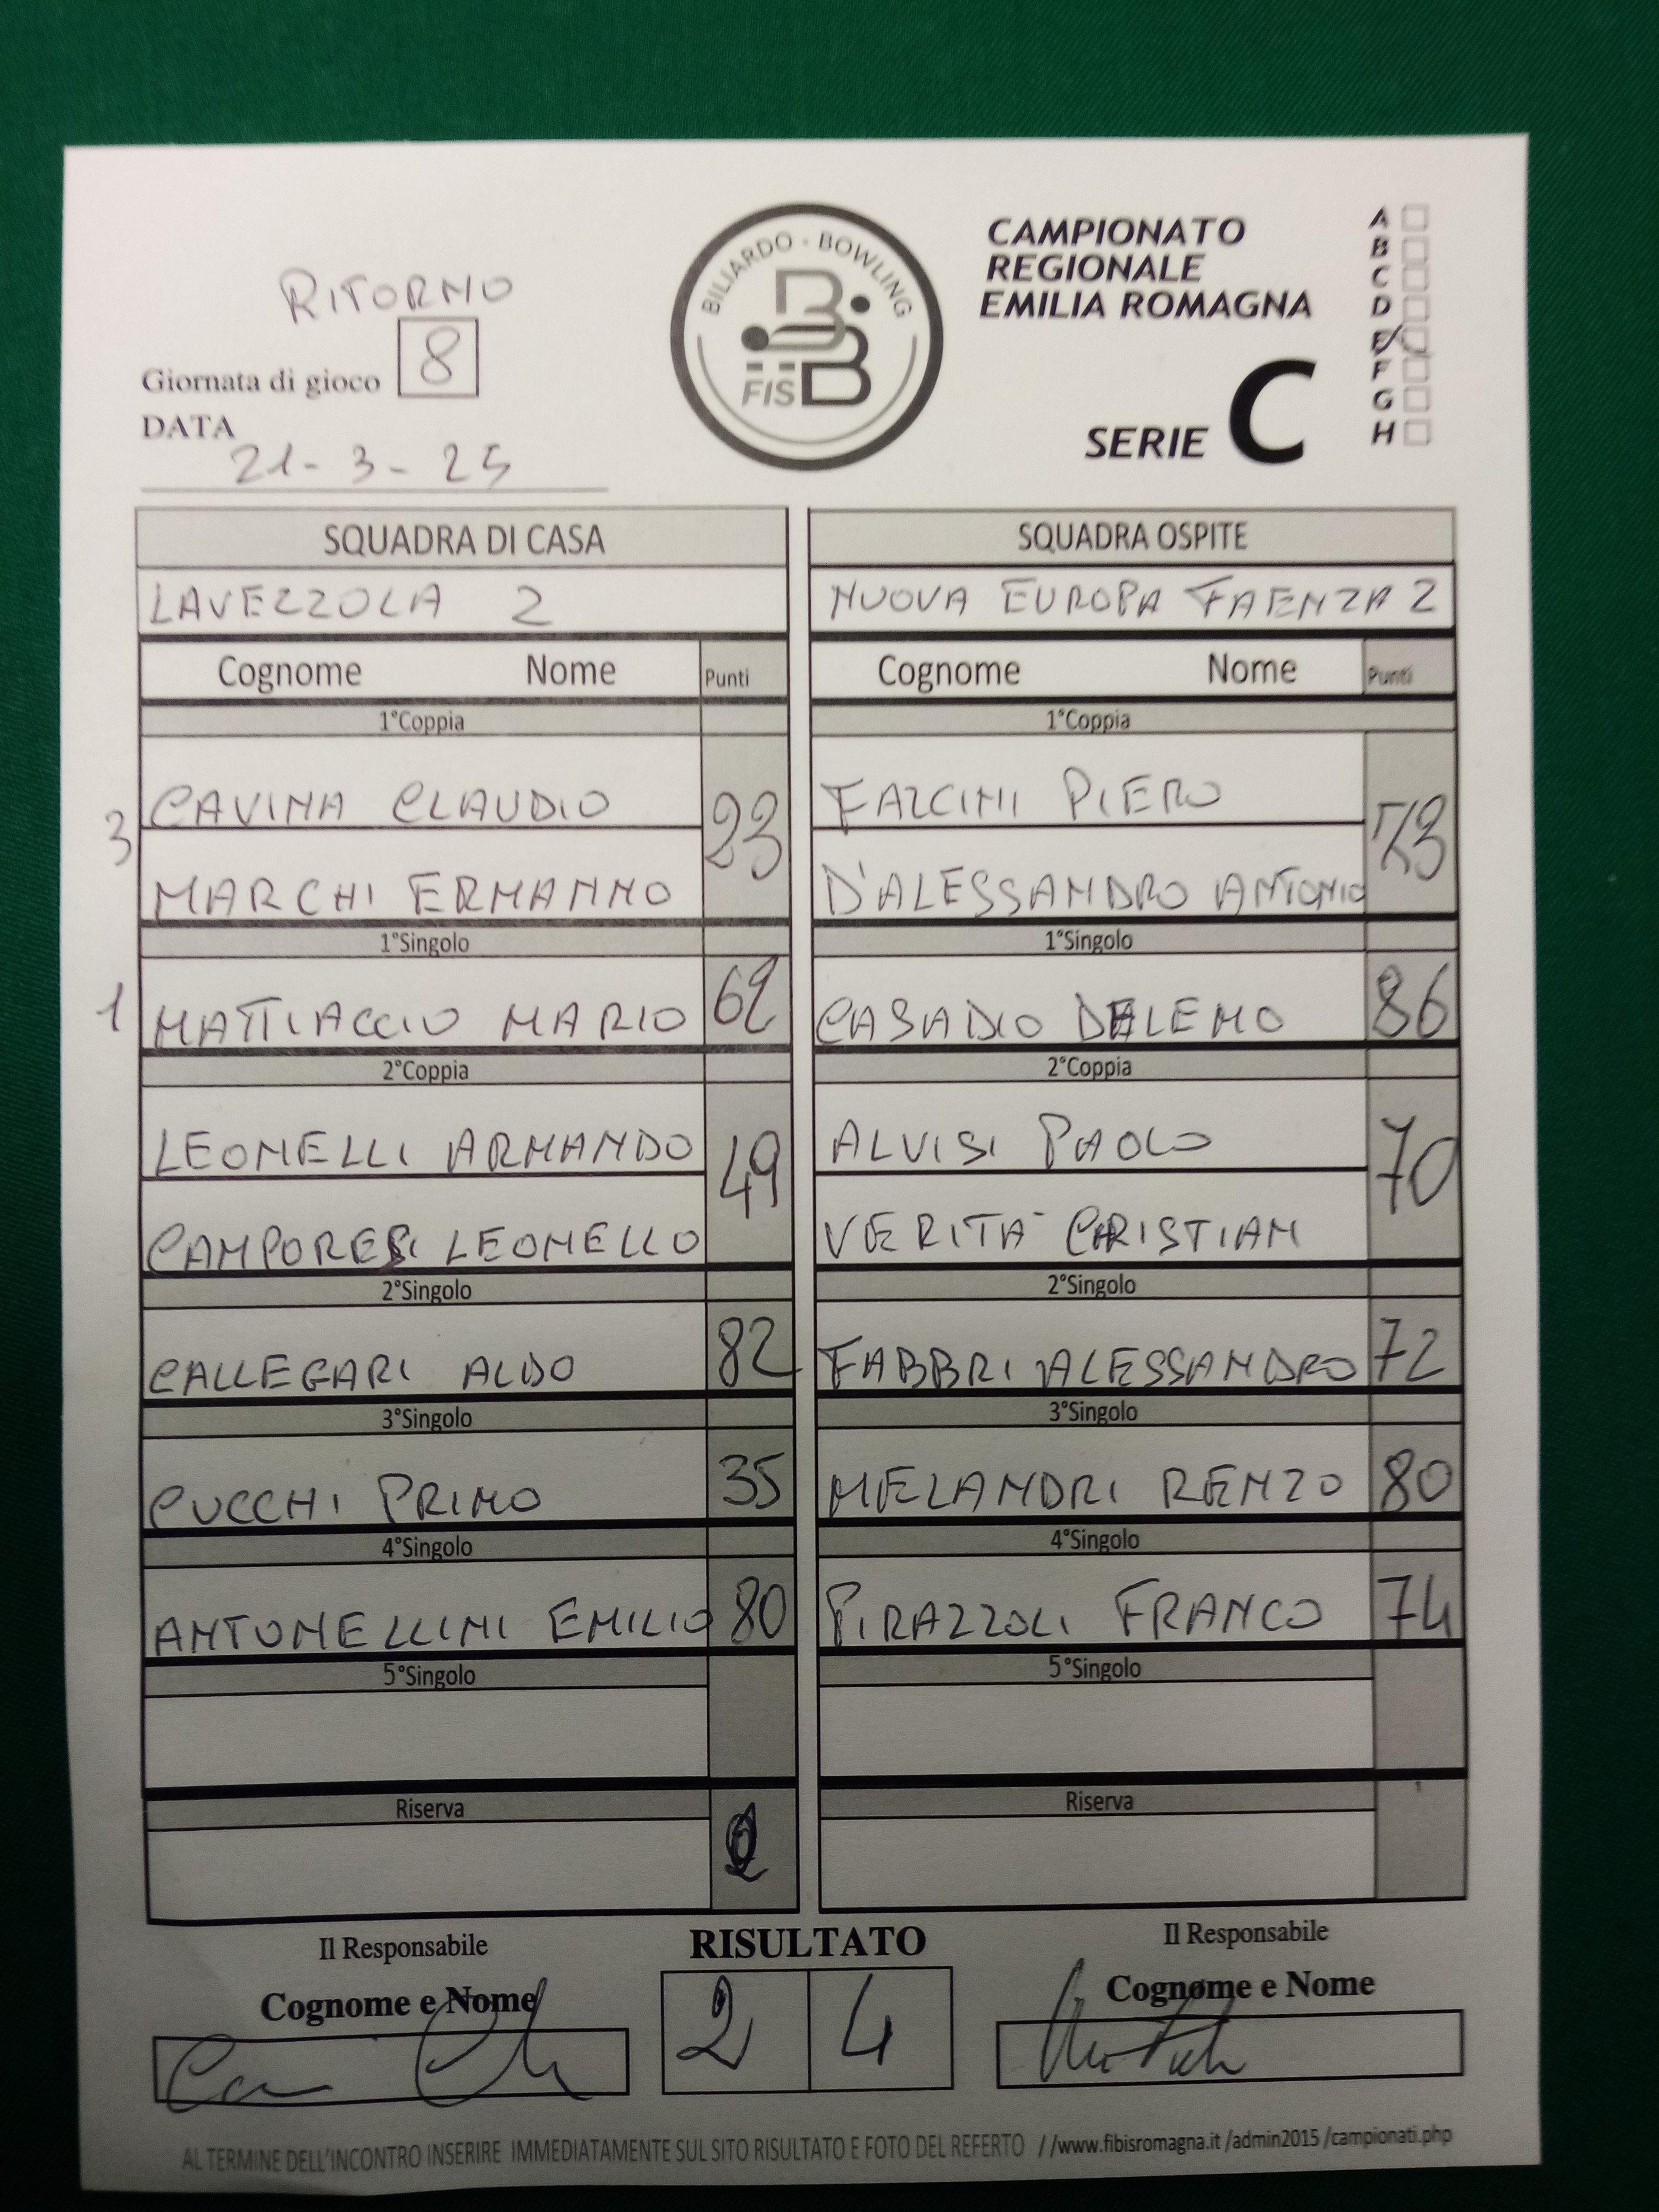 RITORNO
Giornata di gioco 8
DATA
21-3-25
BILIARDO - BOWLING
FISBB
CAMPIONATO
REGIONALE
EMILIA ROMAGNA
SERIE C
A
B
C
D
E
F
G
H
SQUADRA DI CASA
LAVEZZOLA 2
Cognome Nome Punti
1°Coppia
3 CAVINA CLAUDIO 23
MARCHI ERMANNO
1°Singolo
1 MATTIACCIO MARIO 62
2°Coppia
LEONELLI ARMANDO 49
CAMPORESI LEONELLO
2°Singolo
CALLEGARI ALDO 82
3°Singolo
CUCCHI PRIMO 35
4°Singolo
ANTONELLINI EMILIO 80
5°Singolo
Riserva
SQUADRA OSPITE
NUOVA EUROPA FAENZA 2
Cognome Nome Punti
1°Coppia
FALCINI PIERO 73
D'ALESSANDRO ANTONIO
1°Singolo
CASADIO 86
2°Coppia
ALVISI PAOLO 70
VERITA' CHRISTIAN
2°Singolo
FABBRI ALESSANDRO 72
3°Singolo
MELANDRI RENZO 80
4°Singolo
PIRAZZOLI FRANCO 74
5°Singolo
Riserva
Il Responsabile
Cognome e Nome
RISULTATO
2 4
Il Responsabile
Cognome e Nome
AL TERMINE DELL'INCONTRO INSERIRE IMMEDIATAMENTE SUL SITO RISULTATO E FOTO DEL REFERTO //www.fibisromagna.it /admin2015 /campionati.php